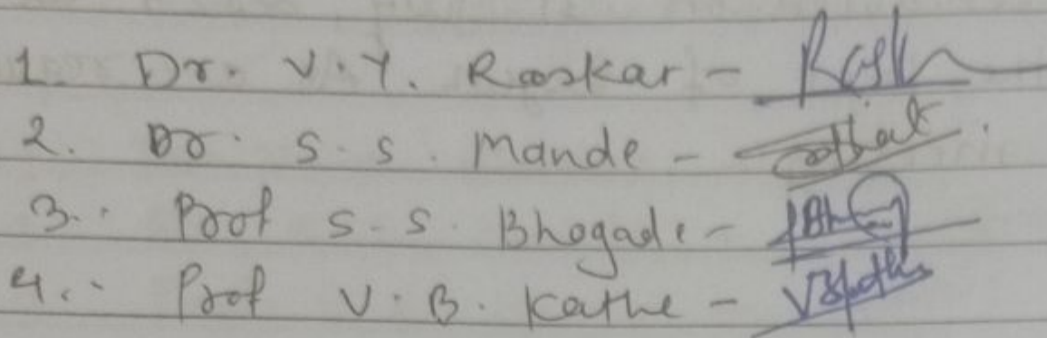 1. Dr. V.Y. Raskar -
2. Dr. S.S. Mande -
3. Prof S.S. Bhogade -
4. Prof V.B. Kathe -